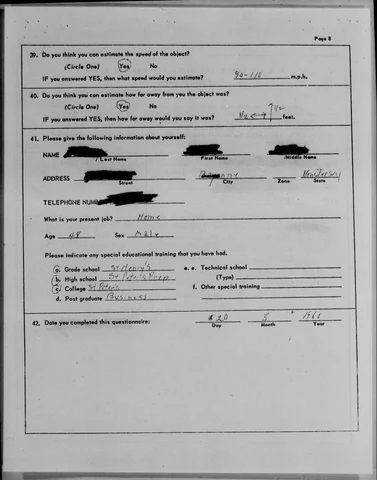 Page 8
39. Do you think you can estimate the speed of the object?
(Circle One) Yes No
IF you answered YES, then what speed would you estimate? m.p.h.
40. Do you think you can estimate how far away from you the object was?
(Circle One) Yes No
IF you answered YES, then how far away would you say it was? feet.
41. Please give the following information about yourself:
NAME
Last Name First Name Middle Name
ADDRESS New Jersey
Street City Zone State
TELEPHONE NUM
What is your present job? None
Age 48 Sex Male
Please indicate any special educational training that you have had.
a. Grade school St Henry's e. e. Technical school
b. High school St Peter's Prep (Type)
c. College St Peter's f. Other special training
d. Post graduate Business
42. Date you completed this questionnaire: 20 5 1961
Day Month Year